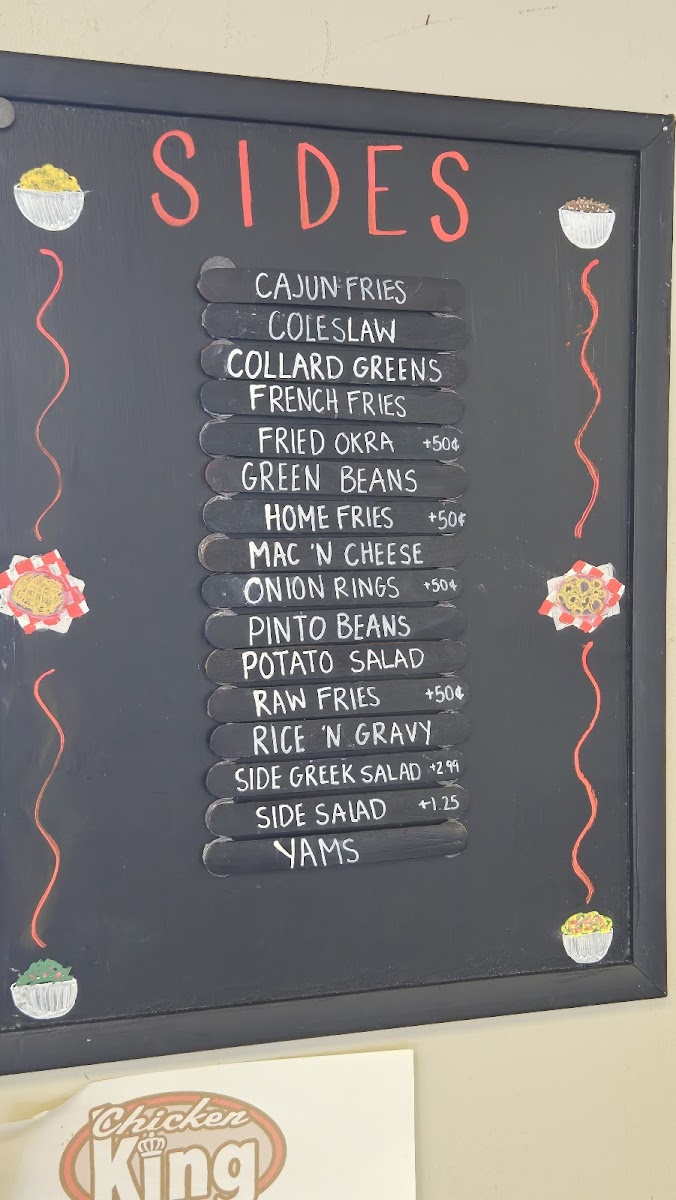 SIDES
CAJUN FRIES
COLESLAW
COLLARD GREENS
FRENCH FRIES
FRIED OKRA +50¢
GREEN BEANS
HOME FRIES +50¢
MAC 'N CHEESE
ONION RINGS +50¢
PINTO BEANS
POTATO SALAD
RAW FRIES +50¢
RICE 'N GRAVY
SIDE GREEK SALAD +2.99
SIDE SALAD +1.25
YAMS
Chicken
King